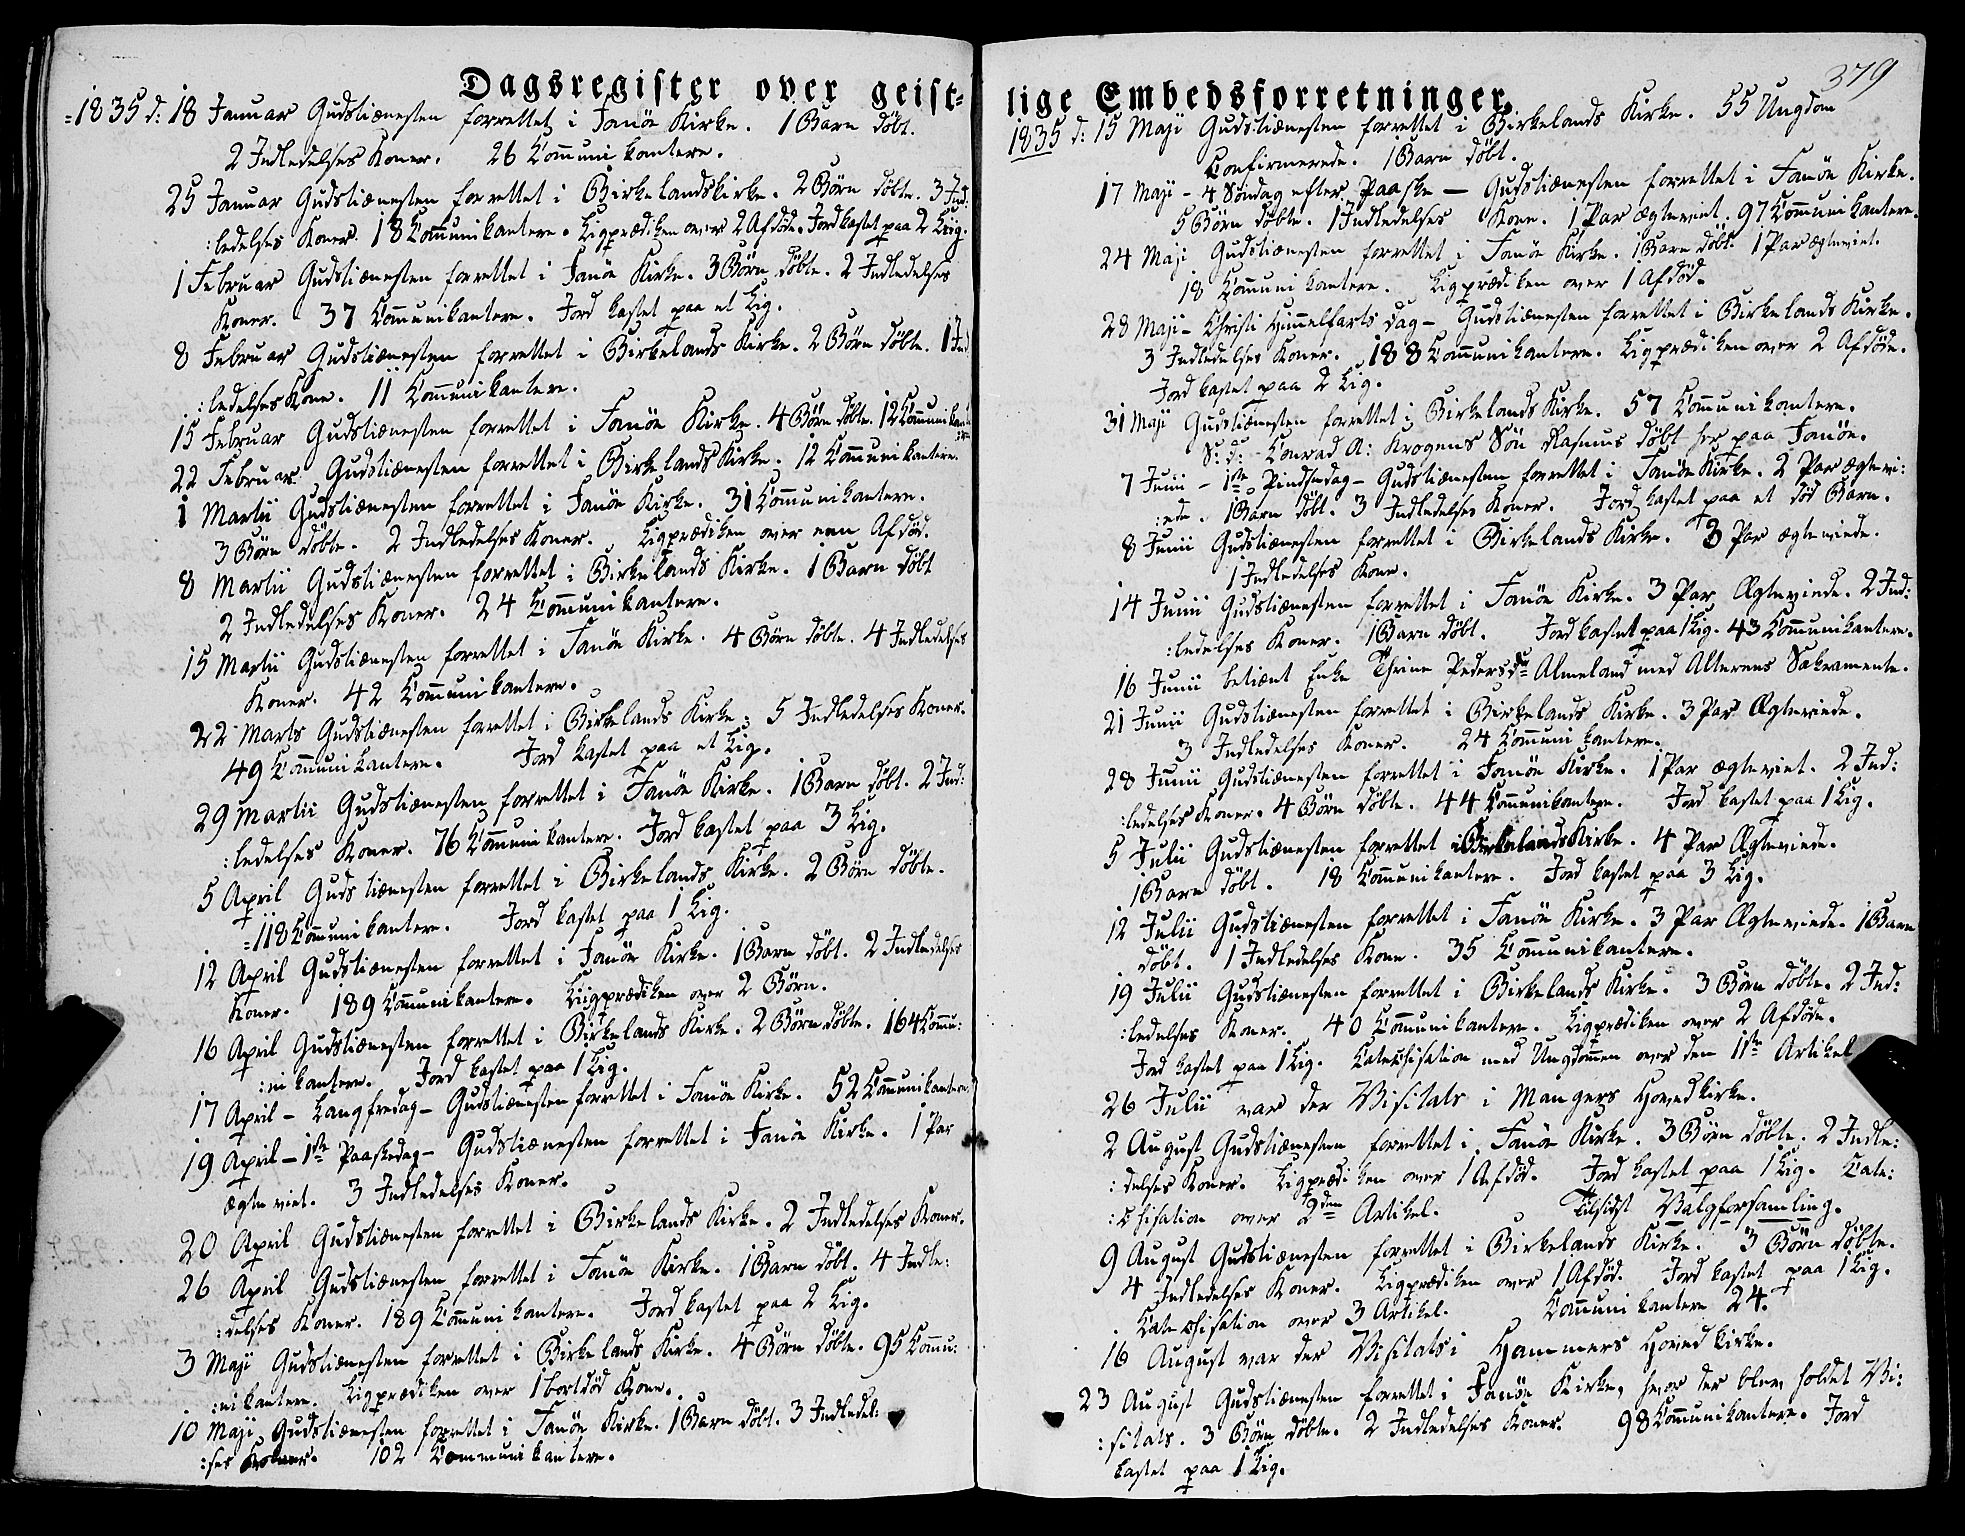 Dagsregister over geist-
1835 d: 18 Januar Gudstiænesten forrettet i Fanöe Kirke. 1 Barn döbt.
2 Indledelses Koner. 26 Com̄unikantere.
25 Januar Gudstiænesten forrettet i Birkelandskirke. 2 Börn döbte. 3 Ind:
:ledelses Koner. 18 Com̄unikantere. Ligprædiken over 2 Afdöde. Jord kastet paa 2 Liig.
1 Februar Gudstiænesten forrettet i Fanöe Kirke. 3 Börn döbte. 2 Indledelses
Koner. 37 Com̄unikantere. Jord kastet paa et Lig.
8 Februar Gudstiænesten forrettet i Birkelands Kirke. 2 Börn döbte. 1 Ind:
:ledelses Kone. 11 Com̄unikantere.
15 Februar Gudstiænesten forrettet i Fanöe Kirke. 4 Börn döbte. 12 Com̄unikan
22 Februar Gudstiænesten forrettet i Birkelands Kirke. 12 Com̄unikantere.
1 Martii Gudstiænesten forrettet i Fanöe Kirke. 31 Com̄unikantere.
3 Börn döbte. 2 Indledelses Koner. Ligprædiken over een Afdöd.
8 Martii Gudstiænesten forrettet i Birkelands Kirke. 1 Barn döbt
2 Indledelses Koner. 24 Com̄unikantere.
15 Martii Gudstiænesten forrettet i Fanöe Kirke. 4 Börn döbte. 4 Indledelses
Koner. 42 Com̄unikantere.
22 Marts Gudstiænesten forrettet i Birkelands Kirke. 5 Indledelses Koner.
49 Com̄unikantere. Jord kastet paa et Lig.
29 Martii Gudstiænesten forrettet i Fanöe Kirke. 1 Barn döbt. 2 Ind:
:ledelses Koner. 76 Com̄unikantere. Jord kastet paa 3 Lig.
5 April Gudstiænesten forrettet i Birkelands Kirke. 2 Börn döbte.
118 Com̄unikantere. Jord kastet paa 1 Lig.
12 April Gudstiænesten forrettet i Fanöe Kirke. 1 Barn döbt. 2 Indledelses
Koner. 189 Com̄unikantere. Liigprædiken over 2 Börn.
16 April Gudstiænesten forrettet i Birkelands Kirke. 2 Börn döbte. 164 Com̄u:
:nikantere. Jord kastet paa 1 Lig.
17 April - Langfredag - Gudstiænesten forrettet i Fanöe Kirke. 52 Com̄unikantere.
19 April - 1ste Paaskedag - Gudstiænesten forrettet i Fanöe Kirke. 1 Par
ægteviet. 3 Indledelses Koner.
20 April Gudstiænesten forrettet i Birkelands Kirke. 2 Indledelses Koner.
26 April Gudstiænesten forrettet i Fanöe Kirke. 1 Barn döbt. 4 Indle:
:delses Koner. 189 Com̄unikantere. Jord kastet paa 2 Lig.
3 Maji Gudstiænesten forrettet i Birkelands Kirke. 4 Börn döbte. 95 Com̄u:
:nikantere. Ligprædiken over 1 bortdöd Kone.
10 Maji Gudstiænesten forrettet i Fanöe Kirke. 1 Barn döbt. 3 Indledel:
:ses Koner. 102 Communikantere.
379
lige Embedsforretninger.
1835 d: 15 Maji Gudstiænesten forrettet i Birkelands Kirke. 55 Ungdom
Confirmerede. 1 Barn döbt.
17 Maji - 4 Söndag efter Paaske - Gudstiænesten forrettet i Fanöe Kirke.
5 Börn döbte. 1 Indledelses Kone. 1 Par ægteviet. 97 Com̄unikantere.
24 Maji Gudstiænesten forrettet i Fanöe Kirke. 1 Barn döbt. 1 Par ægteviet.
18 Com̄unikantere. Ligprædiken over 1 Afdöd.
28 Maji - Christi Himmelfarts Dag - Gudstiænesten forrettet i Birkelands Kirke.
3 Indledelses Koner. 188 Com̄unikantere. Ligprædiken over 2 Afdöde.
Jord kastet paa 2 Lig.
31 Maji Gudstiænesten forrettet i Birkelands Kirke. 57 Com̄unikantere.
S: d: Conrad A: Krogens Sön Rasmus döbt her paa Fanöe.
7 Junii - 1ste Pindsedag - Gudstiænesten forrettet i Fanöe Kirke. 2 Par ægtevi:
:ede. 1 Barn döbt. 3 Indledelses Koner. Jord kastet paa et död Barn.
8 Junii Gudstiænesten forrettet i Birkelands Kirke. 3 Par ægteviede.
1 Indledelses Kone.
14 Junii Gudstiænesten forrettet i Fanöe Kirke. 3 Par Ægteviede. 2 Ind:
:ledelses Koner. 1 Barn döbt. Jord kastet paa 1 Lig. 43 Com̄unikantere.
16 Junii betient Enke Thrine Pedersdr Almeland med Alterens Sakramente.
21 Junii Gudstiænesten forrettet i Birkelands Kirke. 3 Par Ægteviede.
3 Indledelses Koner. 24 Com̄unikantere.
28 Junii Gudstiænesten forrettet i Fanöe Kirke. 1 Par ægteviet. 2 Ind:
:ledelses Koner. 4 Börn döbte. 44 Com̄unikantere. Jord kastet paa 1 Lig.
5 Julii Gudstiænesten forrettet i Birkelands Kirke. 4 Par Ægteviede.
1 Barn döbt. 18 Com̄unikantere. Jord kastet paa 3 Lig.
12 Julii Gudstiænesten forrettet i Fanöe Kirke. 3 Par Ægteviede. 1 Barn
döbt. 1 Indledelses Kone. 35 Com̄unikantere.
19 Julii Gudstiænesten forrettet i Birkelands Kirke. 3 Börn döbte. 2 Ind:
:ledelses Koner. 40 Com̄unikantere. Ligprædiken over 2 Afdöde.
Jord kastet paa 1 Lig. Catechisation med Ungdomen over den 1ste Artikel
26 Julii var der Visitats i Mangers Hovedkirke.
2 August Gudstiænesten forrettet i Fanöe Kirke. 3 Börn döbte. 2 Indle:
:delses Koner. Ligprædiken over 1 Afdöd. Jord kastet paa 1 Lig. Cate:
:chisation over 2den Artikel. Tilsidst Valgforsamling.
9 August Gudstiænesten forrettet i Birkelands Kirke. 3 Börn döbte.
4 Indledelses Koner. Ligprædiken over 1 Afdöd. Jord kastet paa 1 Lig.
Catechisation over 3 Artikel. Com̄unikantere 24.
16 August var der Visitats i Hammers Hovedkirke.
23 August Gudstiænesten forrettet i Fanöe Kirke, hvor der blev holdet Vi:
:sitats. 3 Börn döbte. 2 Indledelses Koner. 98 Com̄unikantere. Jord
kastet paa 1 Lig.